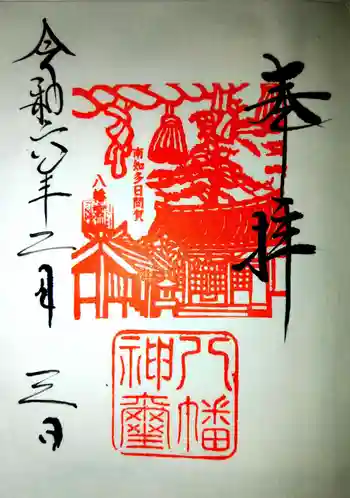 奉拝
南知多日間賀
八幡神社
八幡
神璽
令和六年二月三日